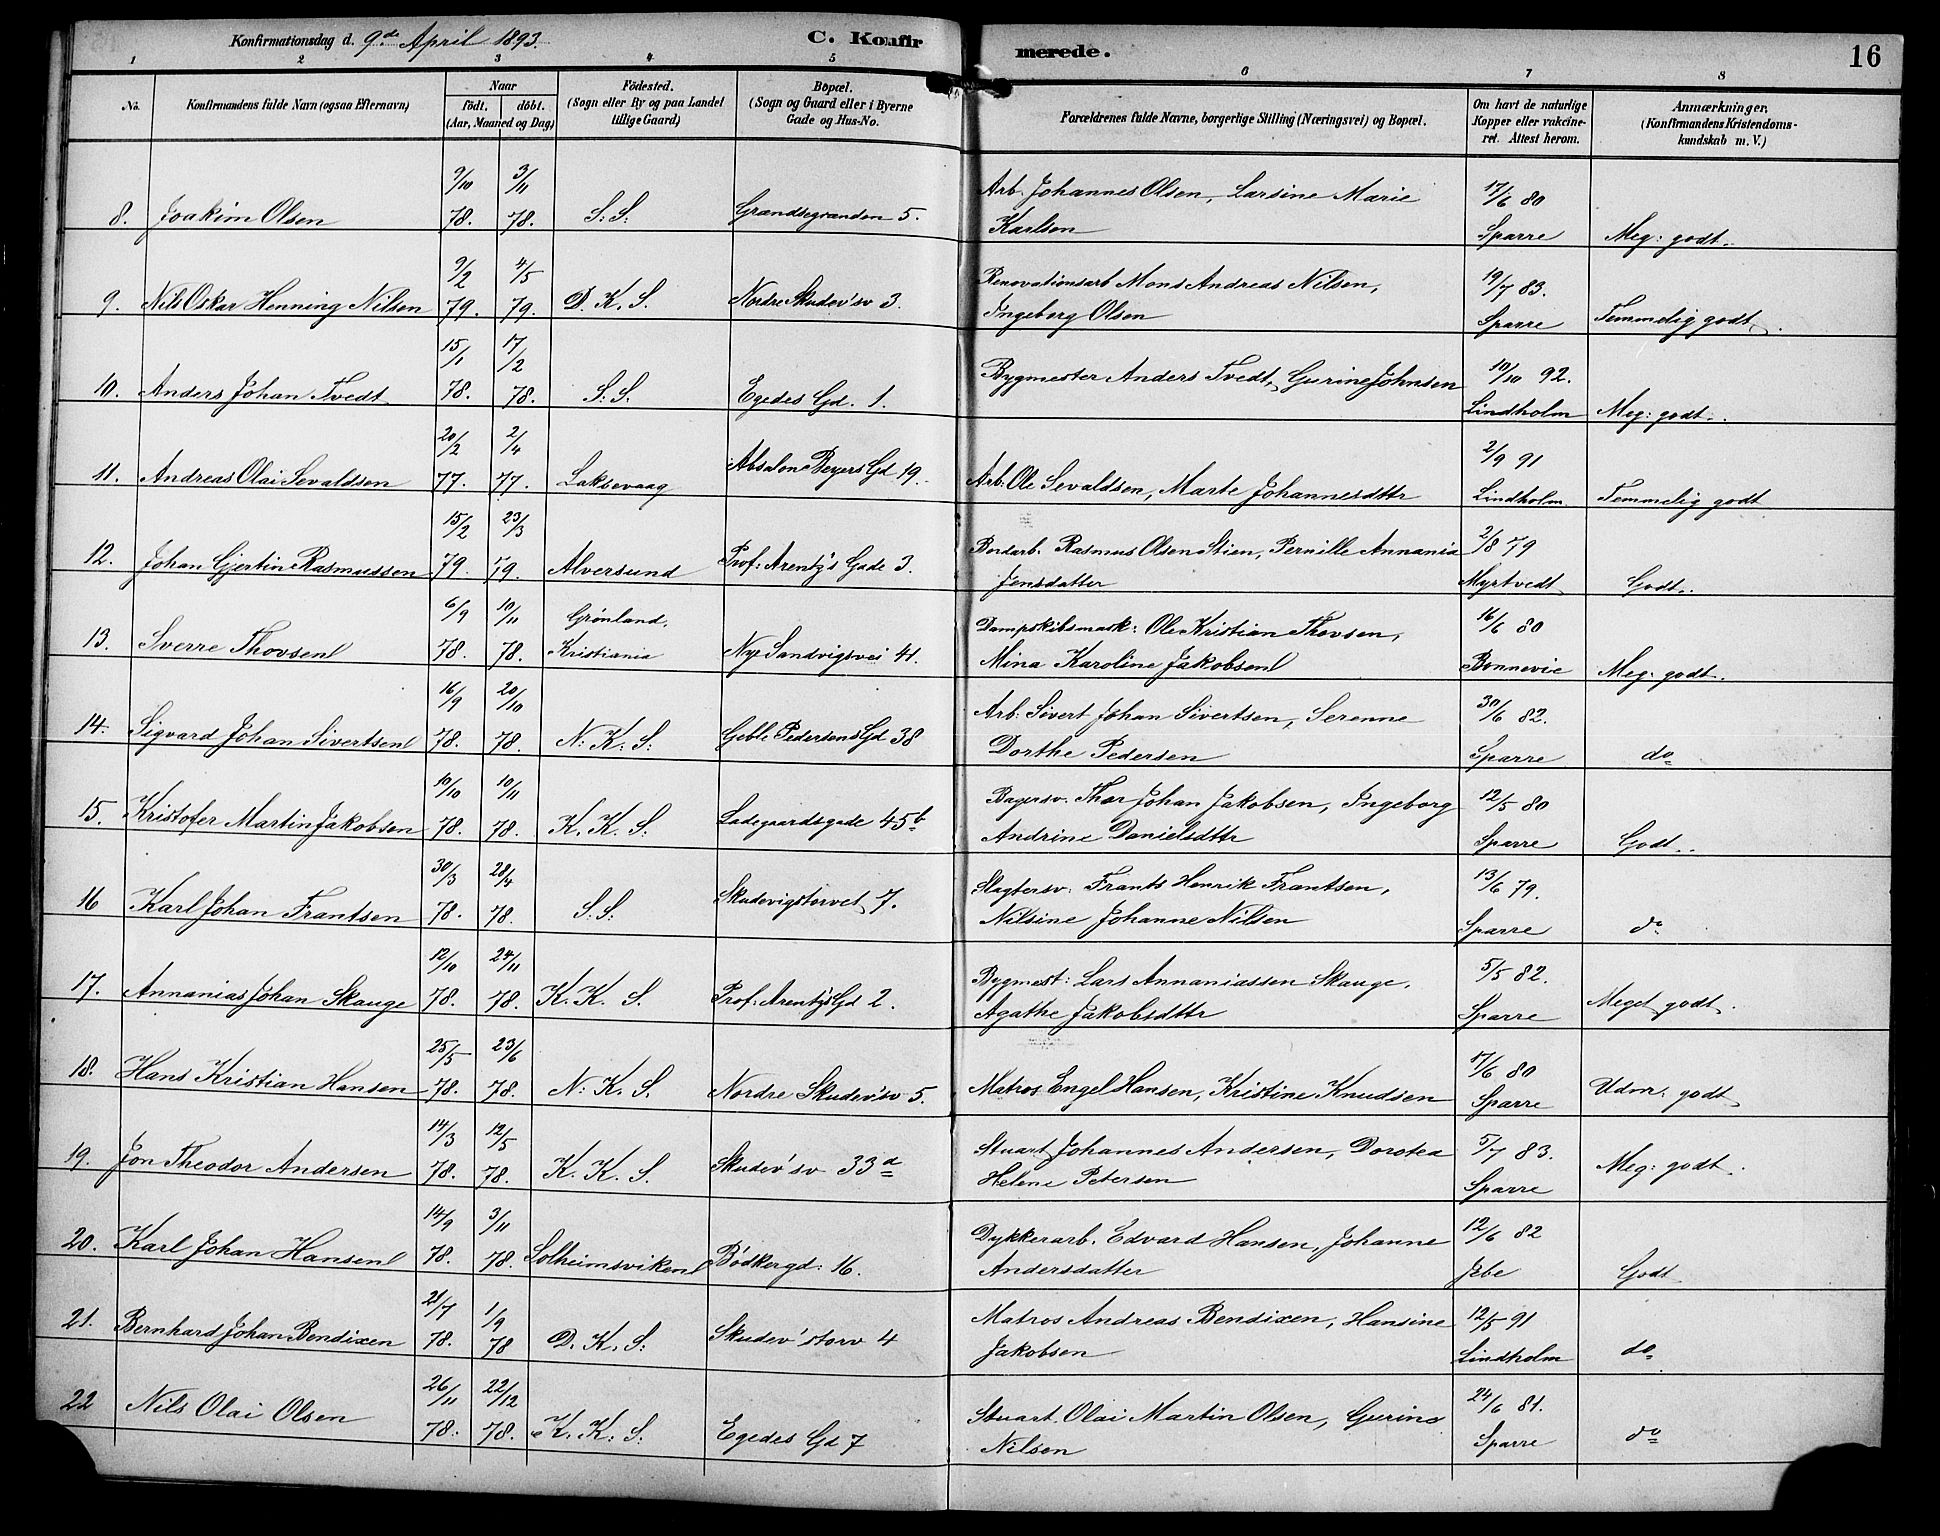 Konfirmationsdag d. 9de April 1893. C. Konfirmerede. 16
1 2 3 4 5 6 7 8
No. Konfirmandens fulde Navn (ogsaa Efternavn) Naar födt. döbt. (Aar, Maaned og Dag) Födested. (Sogn eller By og paa Landet tillige Gaard) Bopæl. (Sogn og Gaard eller i Byerne Gade og Hus-No. Forældrenes fulde Navne, borgerlige Stilling (Næringsvei) og Bopæl. Om havt de naturlige Kopper eller vakcineret. Attest herom. Anmærkninger. (Konfirmandens Kristendomskundskab m. V.)
9/10 3/11 Arb. Johannes Olsen, Larsine Marie 17/6 80
8. Joakim Olsen 78. 78. S: S: Grændsegrænden 5. Karlsen Sparre Meg: godt.
9/2 4/5 Renovationsarb Mons Andreas Nilsen, 19/7 83.
9. Nils Oskar Henning Nilsen 79. 79. D. K. S. Nordre Skudev'sv 3. Ingeberg Olsen Sparre Temmelig godt.
15/1 17/2 Bygmester Anders Tvedt, Gurine Johnsen 10/10 92.
10. Anders Johan Tvedt 78. 78. S: S. Egedes Gd. 1. Lindholm Meg: godt.
20/2 2/4 2/9 91
11. Andreas Olai Sevaldsen 77. 77. Laksevaag Absalon Beyers Gd 19. Arb. Ole Sevaldsen, Marte Johannesdttr Lindholm. Temmelig godt
15/2 23/3 Bordarb. Rasmus Olsen Stien, Pernille Annania 2/8 79
12. Johan Gjertin Rasmussen 79. 79. Alversund Prof: Arentz's Gade 3. Jensdatter Myrtvedt Godt.
6/9 10/11 Grønland, Dampskibsmask: Ole Kristian Thovsen, 16/6 80
13. Sverre Thovsen 78. 78. Kristiania Nye Sandvigsvei 41. Mina Karoline Jakobsen Bonnevie Meg: godt.
16/9 20/10 Arb: Sivert Johan Sivertsen, Serenne 30/6 82.
14. Sigvard Johan Sivertsen 78. 78. N: K: S: Geble Pedersens Gd 38 Dorthe Pedersen Sparre do
10/10 10/11 Bagersv. Thor Johan Jakobsen, Ingeborg 12/5 80
15. Kristofer Martin Jakobsen 78. 78. K. K. S: Ladegaardsgade 45b Andrine Danielsdttr Sparre Godt.
30/3 28/4 Slagtersv: Frants Henrik Frantsen, 13/6 79.
16 Karl Johan Frantsen 78. 78. S.S: Skudevigstorvet 7. Nilsine Johanne Nilsen Sparre do
12/10 24/11 Bygmest: Lars Annaniassen Skauge, 5/5 82.
17. Annanias Johan Skauge 78. 78. K. K. S. Prof: Arentz's Gd 2. Agathe Jakobsdttr Sparre Meget godt.
25/5 23/6 17/6 80
18. Hans Kristian Hansen 78. 78. N: K. S. Nordre Skudev'sv 5. Matros Engel Hansen, Kristine Knudsen Sparre Udm: godt
14/3 12/5 Stuart Johannes Andersen, Dorotea 5/7 83.
19. Jon Theodor Andersen 78. 78. K. K. S. Skudev'sv 33d Helene Petersen Sparre Meg: godt.
14/9 3/11 Dykkerarb. Edvard Hansen, Johanne 12/6 82
20. Karl Johan Hansen 78. 78. Solheimsviken Bödkergd: 16. Andersdatter Jebe Godt
21/7 1/9 Matros Andreas Bendixen, Hansine 12/5 91
21. Bernhard Johan Bendixen 78. 78 D. K. S: Skudev'storv 4 Jakobsen Lindholm do
26/11 22/12 Stuart. Olai Martin Olsen, Gurine 24/6 81.
22 Nils Olai Olsen 78. 78. K. K: S: Egedes Gd 7 Nilsen Sparre do